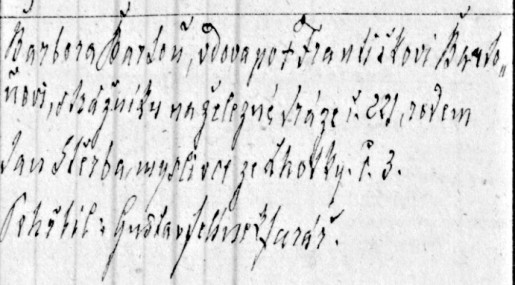 Barbora Bartoň, vdova po † Františkovi Barto„
ňovi, strážníku na železné dráze č. 221, rodem
Jan Štěrba, myslivec ze Lhotky. č. 3.
Pohřbil: Gustav farář.